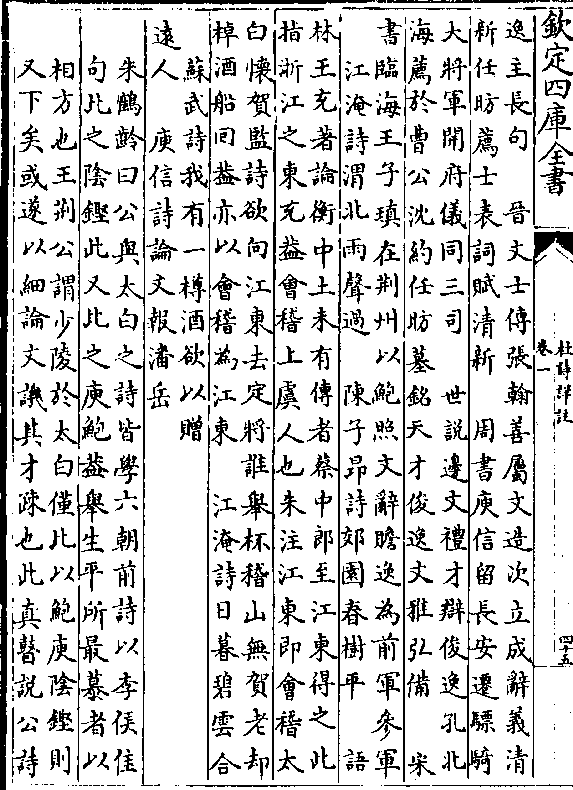 欽定四庫全書
杜詩詳註
卷一
四十五
逸主長句　晉文士傳張翰善屬文造次立成辭義清
新任昉薦士表詞賦清新　周書庾信留長安遷驃騎
大將軍開府儀同三司　世說邊文禮才辯俊逸孔北
海薦於曹公沈約任昉墓銘天才俊逸文雅弘備　宋
書臨海王子瑱在荆州以鮑照文辭贍逸為前軍參軍
江淹詩渭北雨聲過　陳子昂詩郊園春樹平　語
林王充著論衡中土未有傳者蔡中郎至江東得之此
指浙江之東充葢會稽上虞人也朱注江東即會稽太
白懷賀監詩欲向江東去定將誰舉杯稽山無賀老却
棹酒船回葢亦以會稽為江東　江淹詩日暮碧雲合
蘇武詩我有一樽酒欲以贈
遠人　庾信詩論文報潘岳
朱鶴齡曰公與太白之詩皆學六朝前詩以李侯佳
句比之陰鏗此又比之庾鮑葢舉生平所最慕者以
相方也王荆公謂少陵於太白僅比以鮑庾陰鏗則
又下矣或遂以細論文譏其才疎也此真瞽説公詩